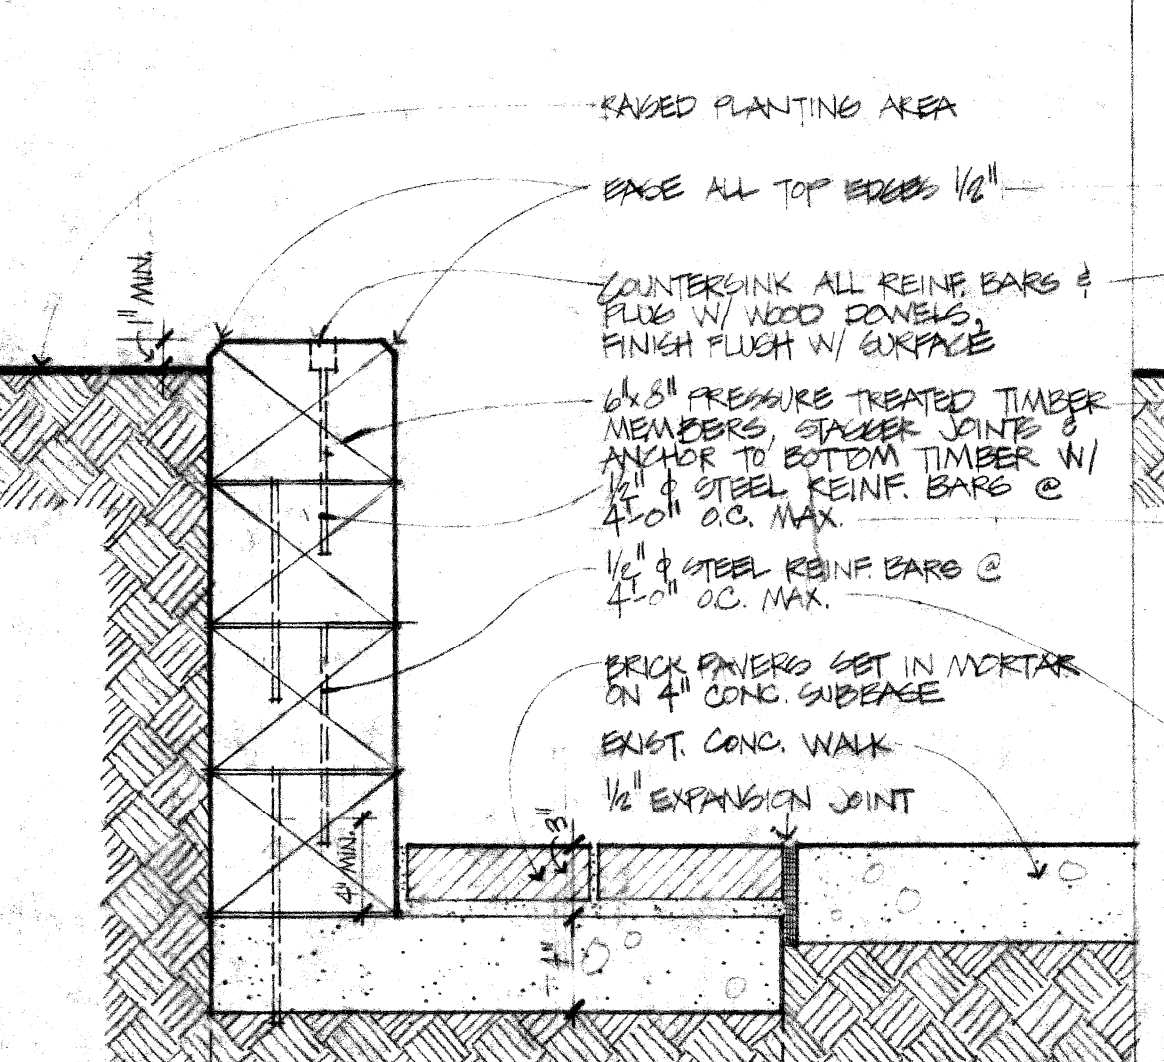 RAISED PLANTING AREA
EASE ALL TOP EDGES 1/2"
1" MIN.
COUNTERSINK ALL REINF. BARS &
PLUG W/ WOOD DOWELS,
FINISH FLUSH W/ SURFACE
6"x8" PRESSURE TREATED TIMBER
MEMBERS, STAGGER JOINTS &
ANCHOR TO BOTTOM TIMBER W/
1/2" φ STEEL REINF. BARS @
4'-0" O.C. MAX.
1/2" φ STEEL REINF. BARS @
4'-0" O.C. MAX.
BRICK PAVERS SET IN MORTAR
ON 4" CONC. SUBBASE
EXIST. CONC. WALK
1/2" EXPANSION JOINT
3"
4" MIN.
4"